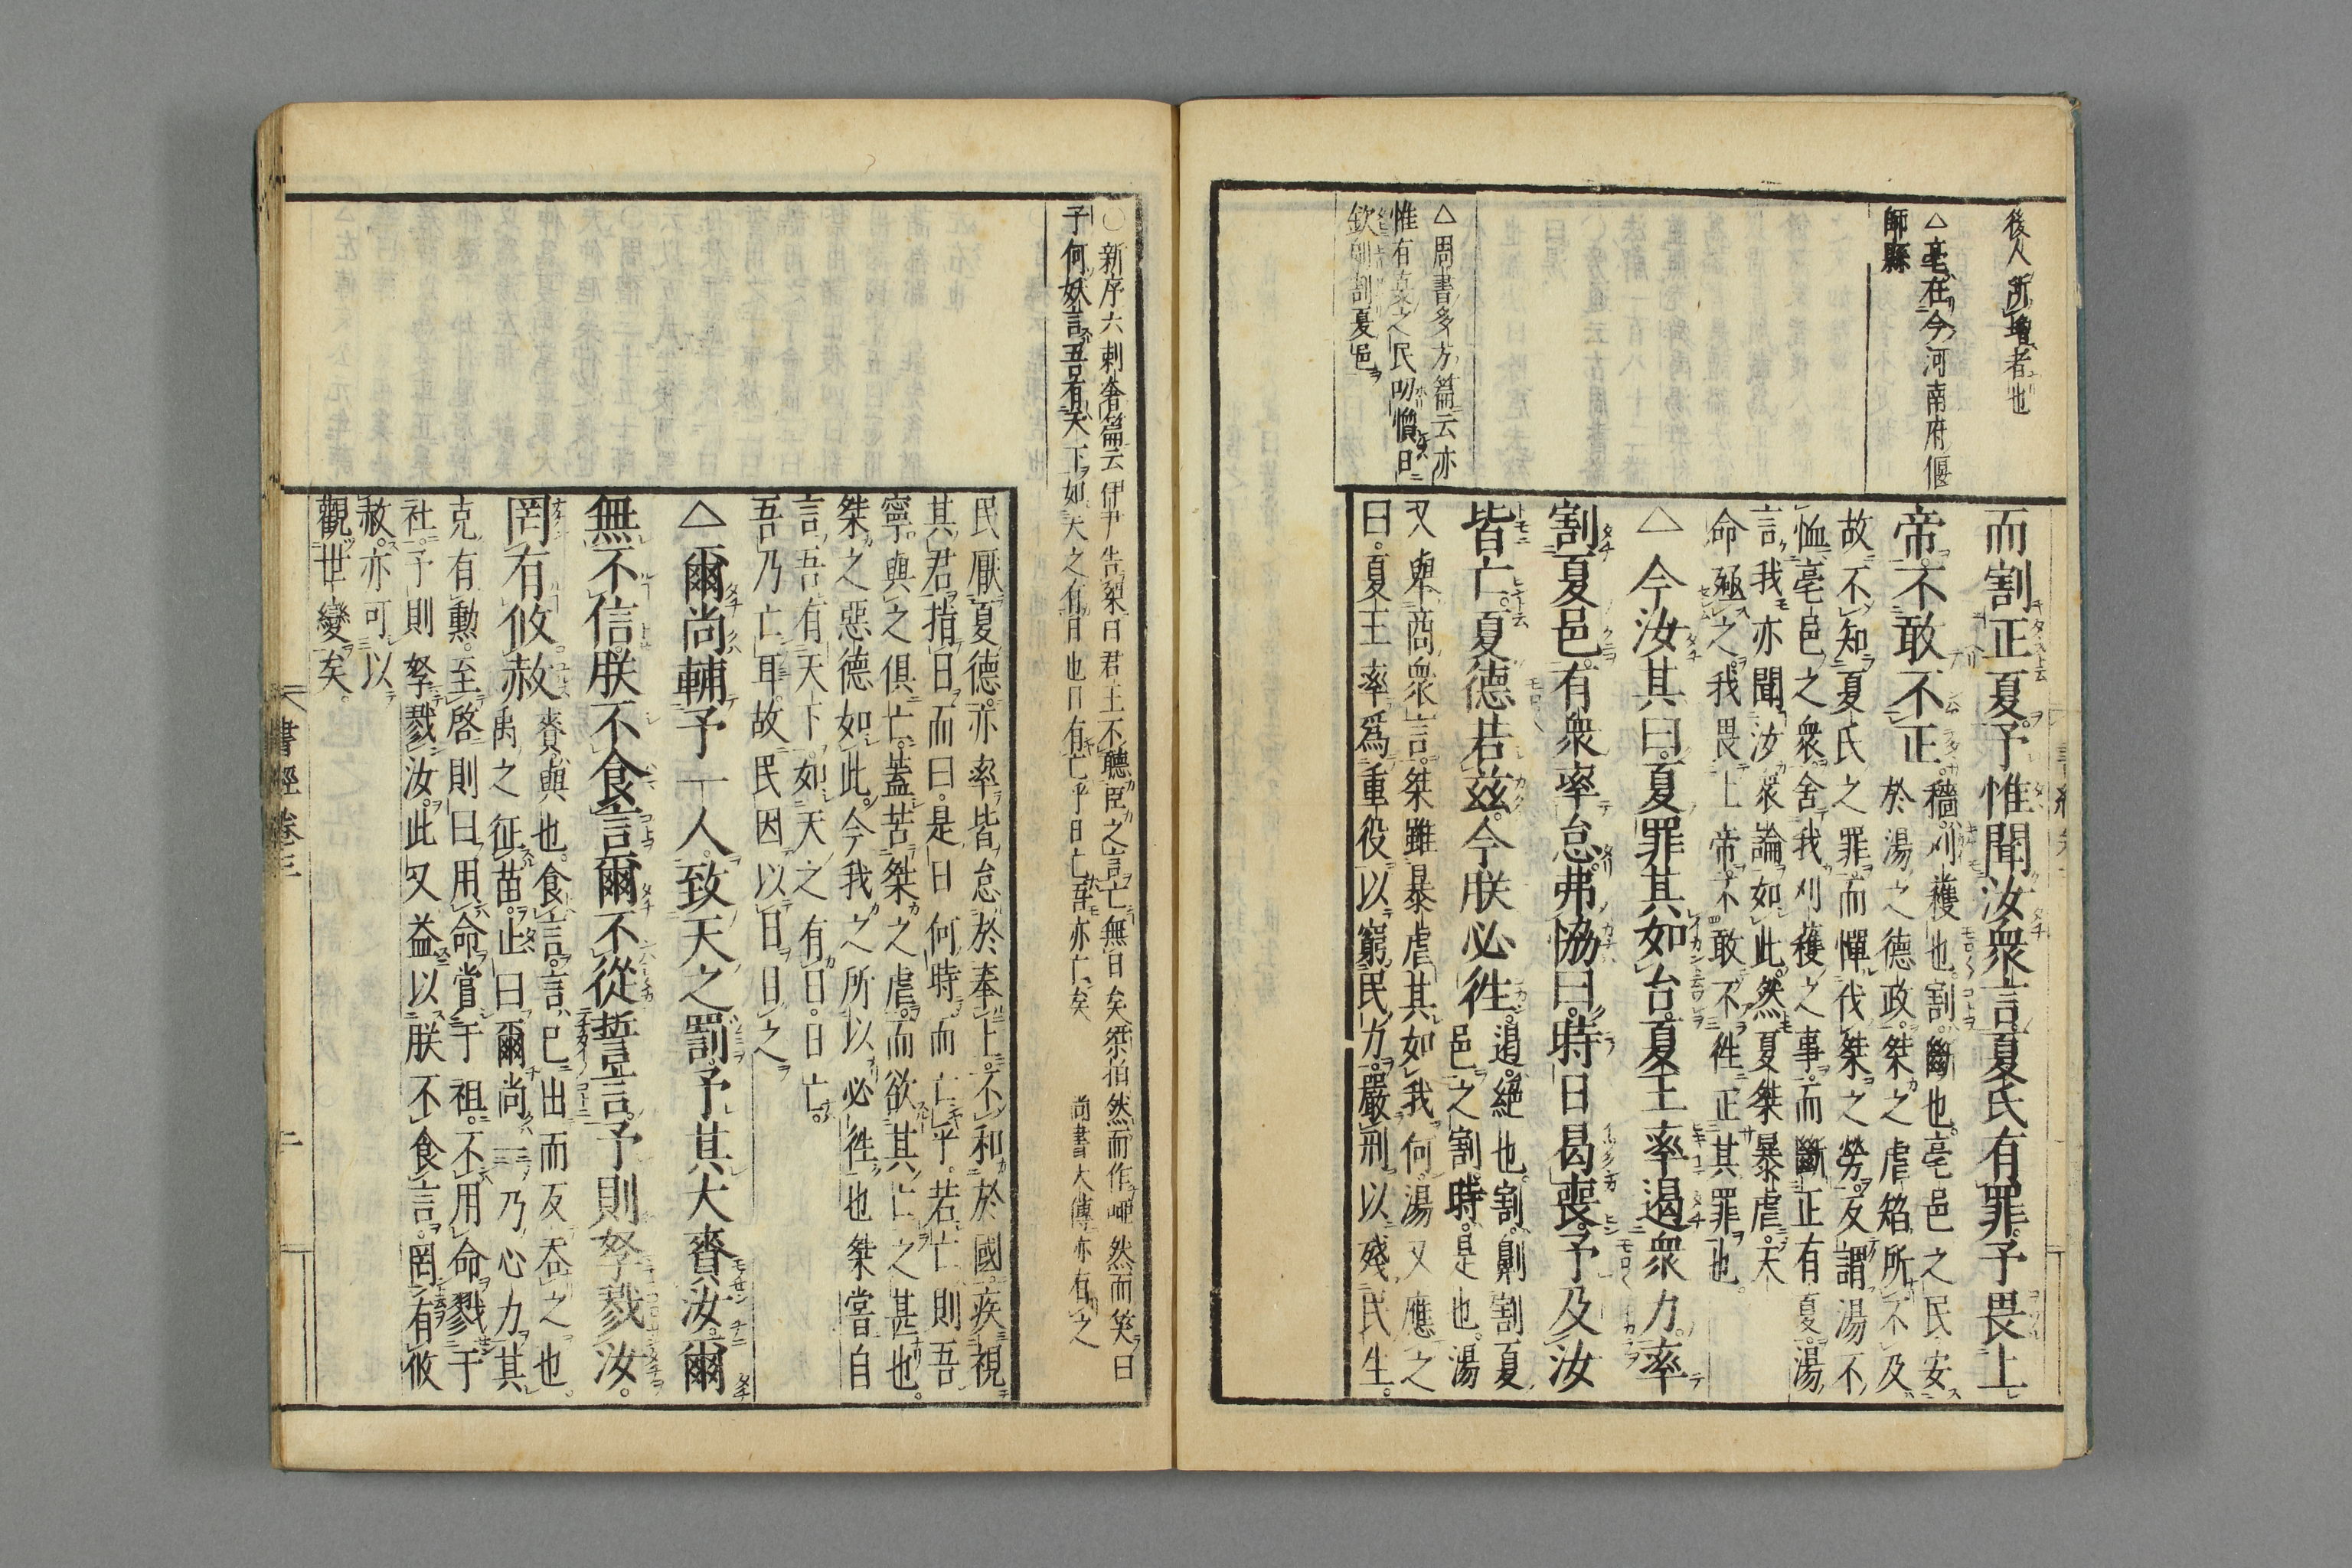 後人所增者也
△亳在今河南府偃
師縣
△周書多方篇云亦
惟有夏之民叨懫日
欽劓割夏邑
而割正夏予惟聞汝衆言夏氏有罪予畏上
帝不敢不正穡刈穫也割斷也亳邑之民安
於湯之德政桀之虐焰所不及
故不知夏氏之罪而憚伐桀之勞反謂湯不
恤亳邑之衆舍我刈穫之事而斷正有夏湯
言我亦聞汝衆論如此然夏桀暴虐天
命殛之我畏上帝不敢不徃正其罪也
△今汝其曰夏罪其如台夏王率遏衆力率
割夏邑有衆率怠弗恊曰時日曷喪予及汝
皆亡夏德若茲今朕必徃遏絕也割劓割夏
邑之割時是也湯
又舉商衆言桀雖暴虐其如我何湯又應之
曰夏王率爲重役以窮民力嚴刑以殘民生
○新序六刺奢篇云伊尹告桀曰君王不聽臣之言亡無日矣桀拍然而作唖然而笑曰
子何妖言吾有天下如天之有日也日有亡乎日亡吾亦亡矣 尚書大傳亦有之
民厭夏德亦率皆怠於奉上不和於國疾視
其君指日而曰是日何時而亡乎若亡則吾
寧與之俱亡蓋苦桀之虐而欲其亡之甚也
桀之惡德如此今我之所以必徃也桀嘗自
言吾有天下如天之有日日亡
吾乃亡耳故民因以日目之
△爾尚輔予一人致天之罰予其大賚汝爾
無不信朕不食言爾不從誓言予則孥戮汝
罔有攸赦賚與也食言言已出而反吞之也
禹之征苗止曰爾尚一乃心力其
克有勳至啓則曰用命賞于祖不用命戮于
社予則孥戮汝此又益以朕不食言罔有攸
赦亦可以
觀世變矣
書經卷三